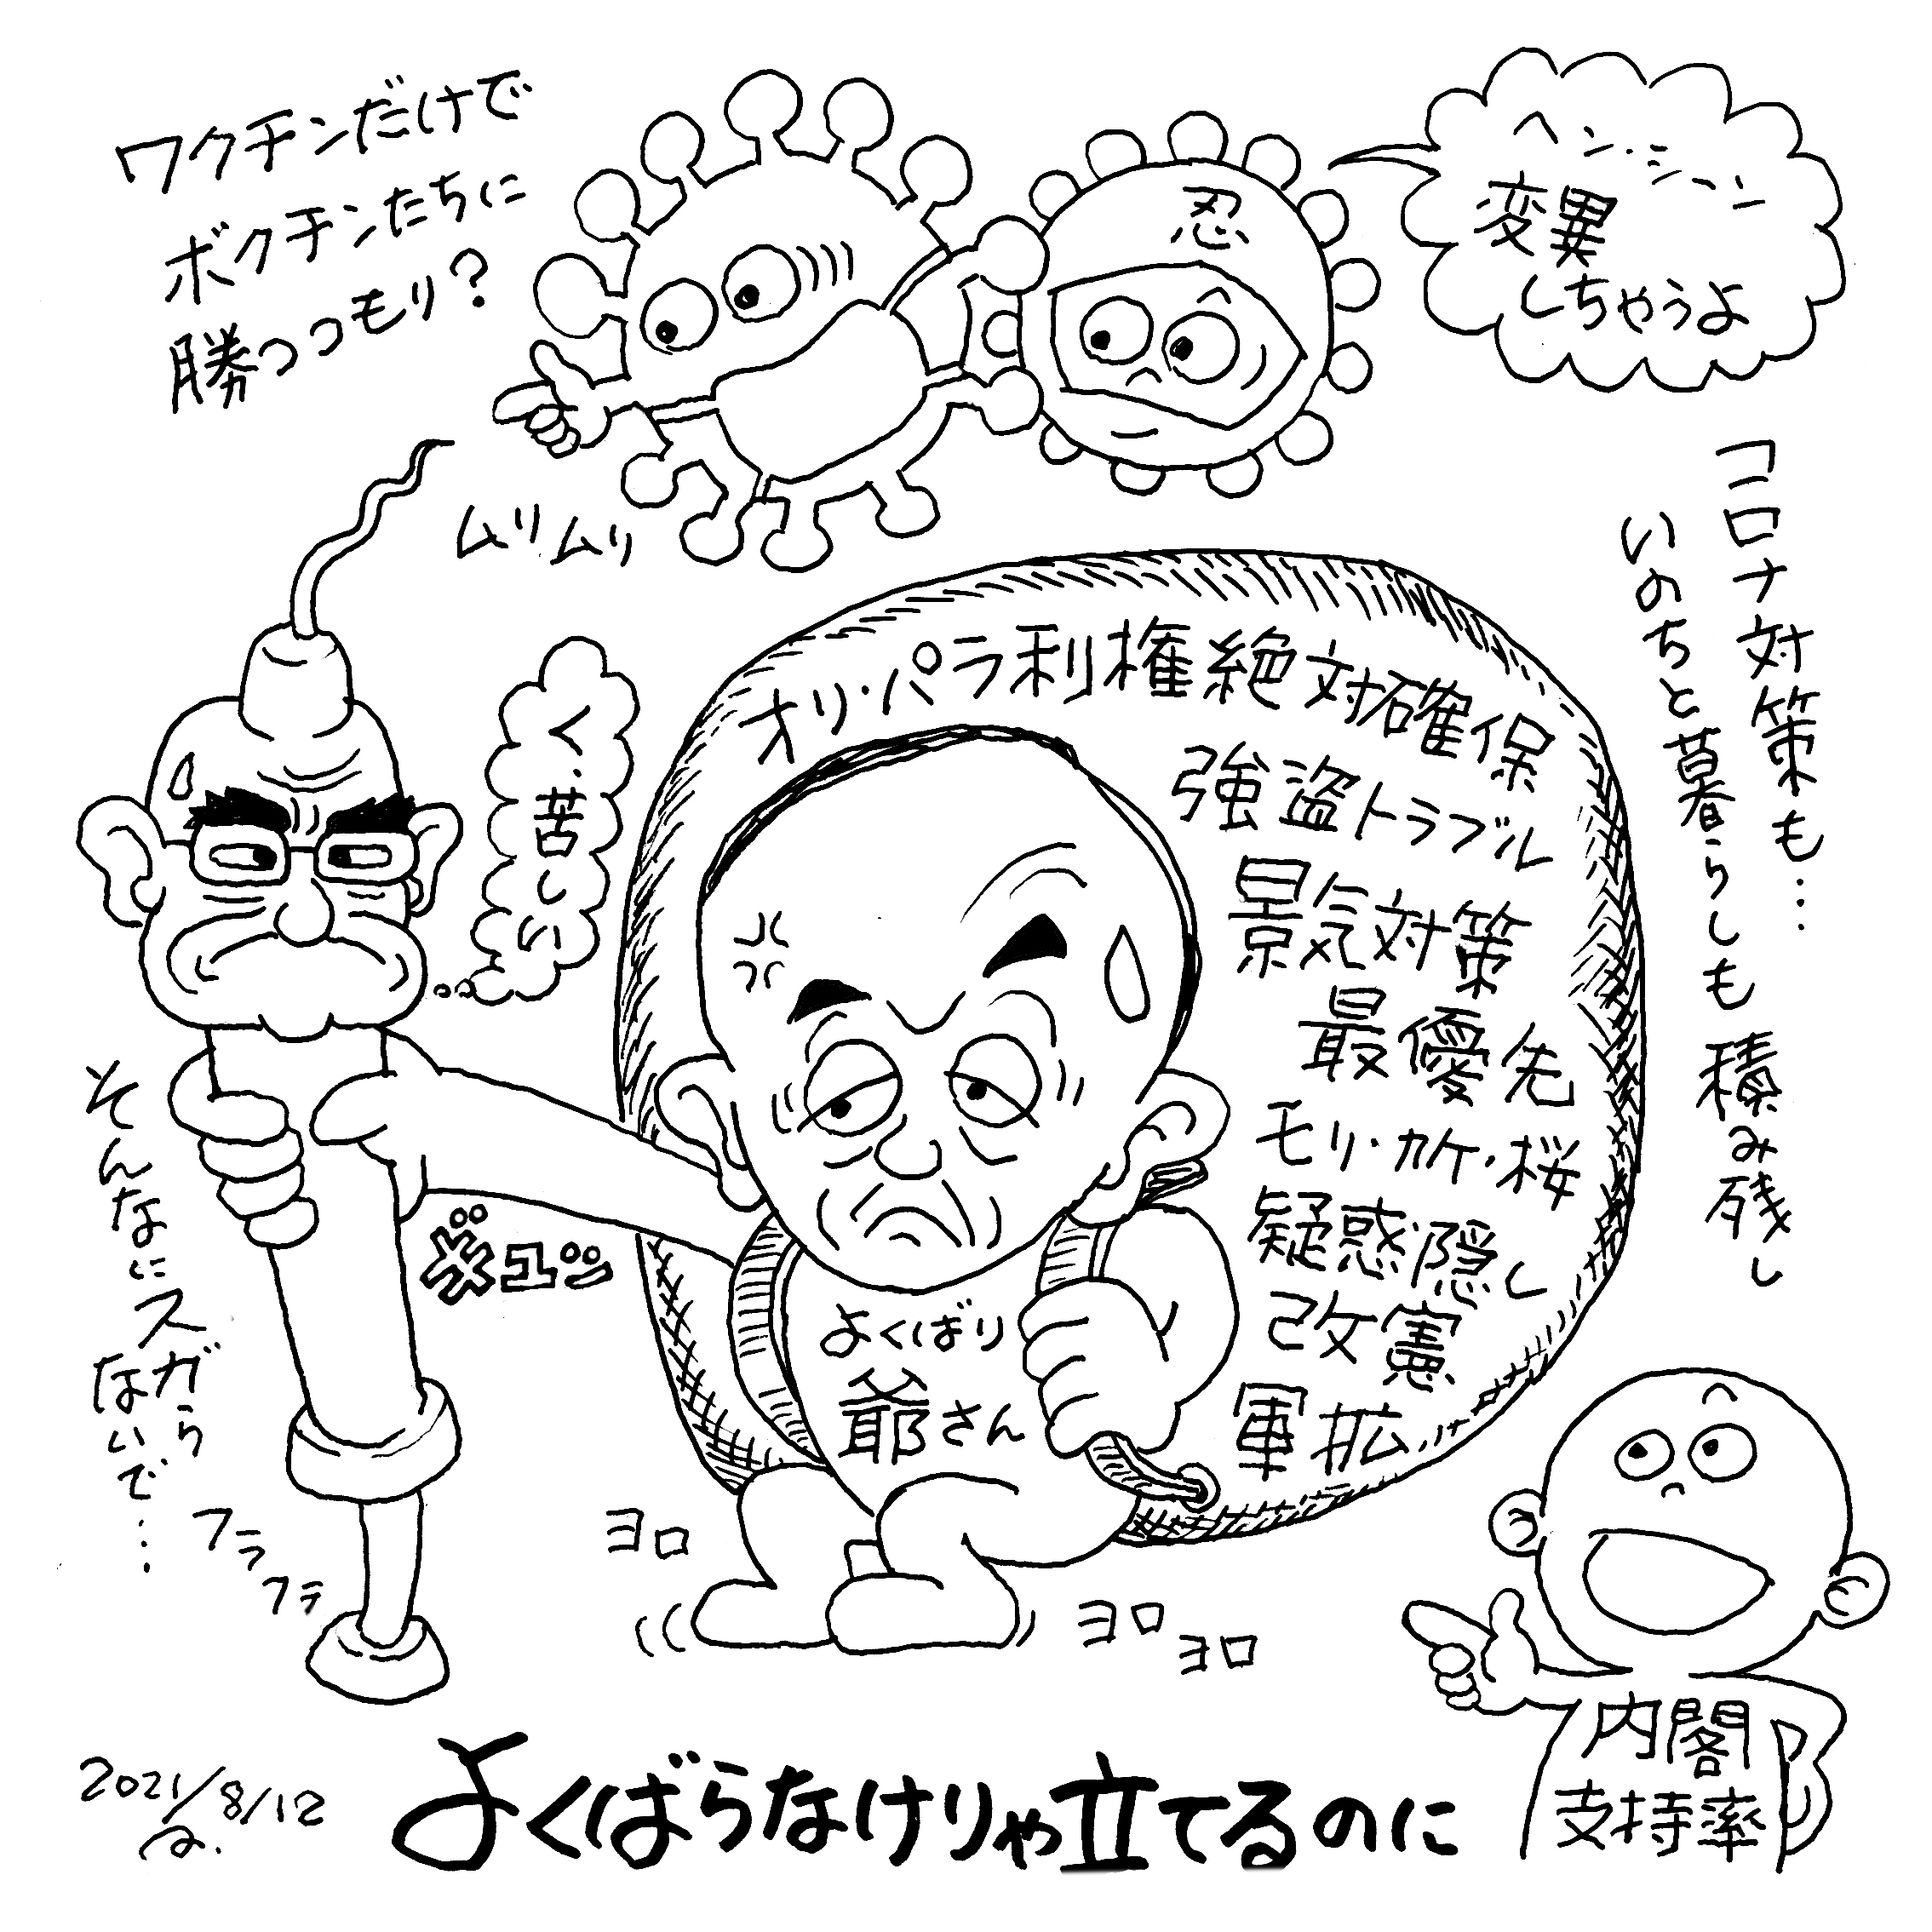 ワクチンだけで
ボクチンたちに
勝つつもり?
ムリムリ
忍
ヘン・シーン
変異
しちゃうよ
コロナ対策も…
いのちと暮らしも積み残し
く、苦しい
そんなにスガら
ないで…
オリ・パラ利権絶対確保
強盗トラブル
景気対策
最優先
モリ・カケ・桜
疑惑隠し
改憲
軍拡
ギュッ
よくばり
爺さん
フラ
フラ
ヨロ
ヨロ
ヨロ
内閣
支持率
よくばらなけりゃ立てるのに
2021/8/12